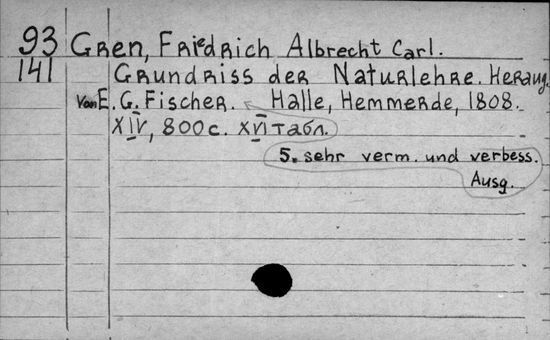 93 Gren, Friedrich Albrecht Carl.
141 Grundriss der Naturlehre. Herausg.
von E. G. Fischer. Halle, Hemmerde, 1808.
XIV, 800 с. XVI табл.
5. sehr verm. und verbess.
Ausg.